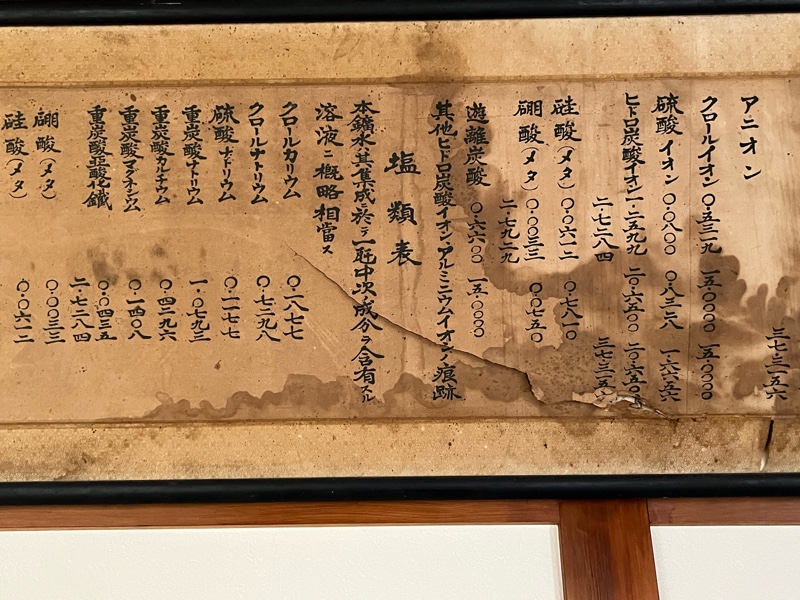 三七・三一五六
アニオン
クロールイオン 〇・五三一九 一五・〇〇〇〇 一五・〇〇〇〇
硫酸イオン 〇・〇八〇〇 〇・八三二八 一・六六五六
ヒドロ炭酸イオン 一・二五九九 二〇・六五〇〇 二〇・六五〇〇
二・七二八四 三七・三一五
硅酸(メタ) 〇・〇六一二 〇・七八一〇
硼酸(メタ) 〇・〇〇三三 〇・〇七五〇
二・七九二九
遊離炭酸 〇・〇六六〇〇 一五・〇〇〇〇
其他ヒドロ炭酸イオン、アルミニウムイオンノ痕跡
塩類表
本鑛水ハ其集成ニ於テ一瓩中次ノ成分ヲ含有スル
溶液ニ概略相當ス
クロールカリウム 〇・一八七七
クロールナトリウム 〇・七二九八
硫酸ナトリウム 〇・一一七七
重炭酸ナトリウム 一・〇七九三
重炭酸カルチウム 〇・四二九六
重炭酸マグネシウム 〇・一四〇八
重炭酸亜酸化鐵 〇・〇四三五
二・七二八四
硼酸(メタ) 〇・〇〇三三
硅酸(メタ) 〇・〇六一二